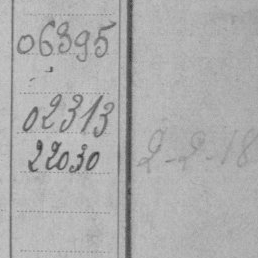 06395
02313
22030 2-2-18